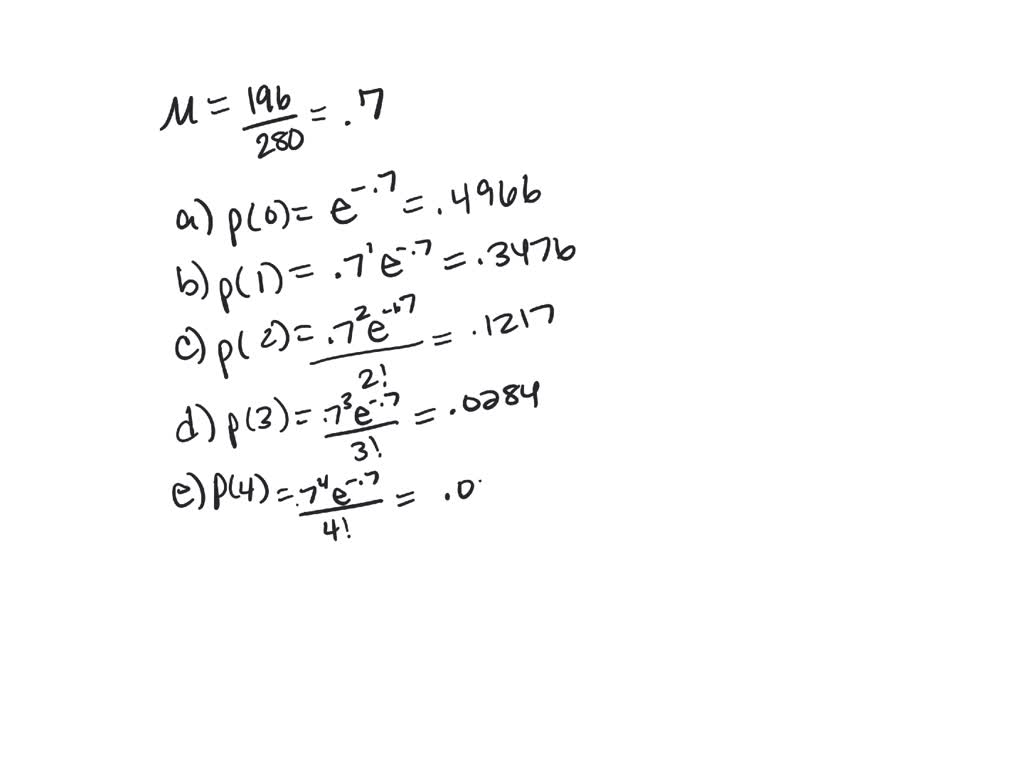 M = 196/280 = .7
a) p(0) = e^-.7 = .4966
b) p(1) = .7^1 e^-.7 = .3476
c) p(2) = .7^2 e^-.7 / 2! = .1217
d) p(3) = .7^3 e^-.7 / 3! = .0284
e) P(4) = .7^4 e^-.7 / 4! = .0